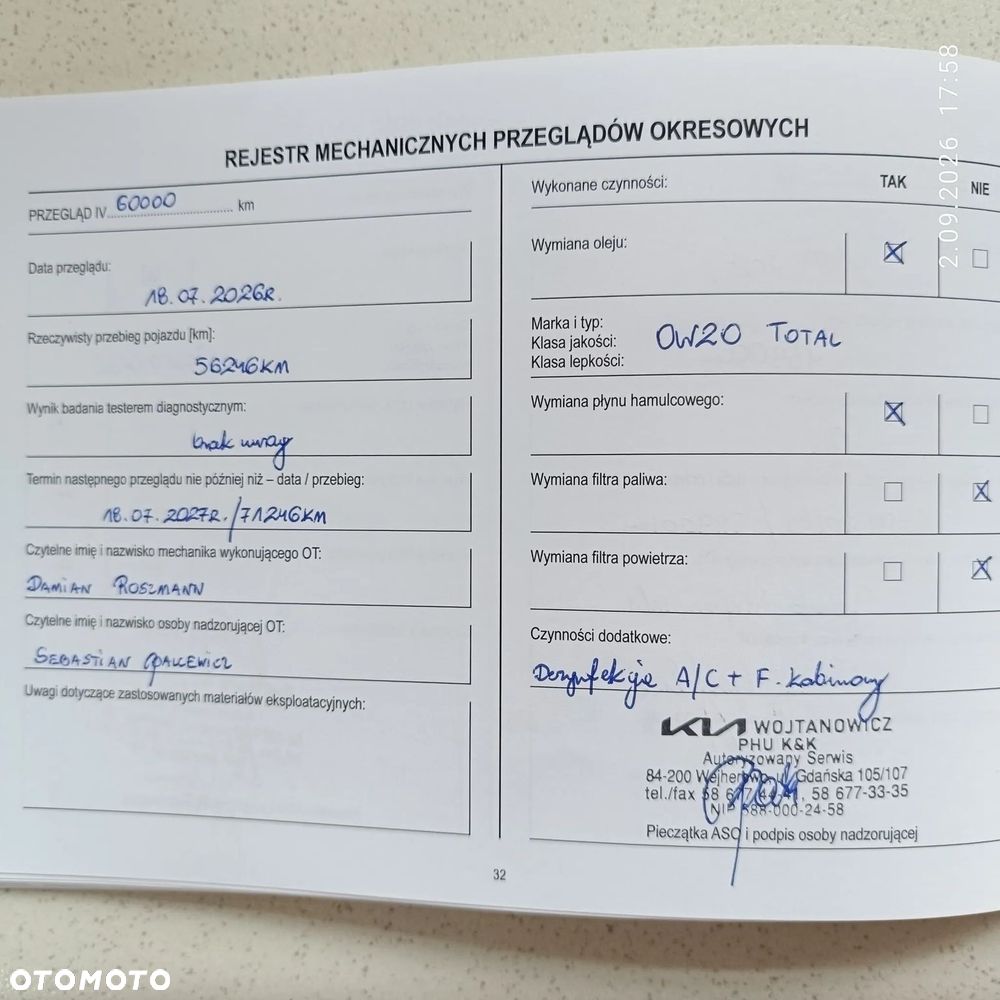 2.09.2026 17:58
REJESTR MECHANICZNYCH PRZEGLĄDÓW OKRESOWYCH
PRZEGLĄD IV 60000 km
Data przeglądu:
18.07.2026R.
Rzeczywisty przebieg pojazdu [km]:
56246KM
Wynik badania testerem diagnostycznym:
brak uwag
Termin następnego przeglądu nie później niż – data / przebieg:
18.07.2027R./71246KM
Czytelne imię i nazwisko mechanika wykonującego OT:
DAMIAN ROSZMANN
Czytelne imię i nazwisko osoby nadzorującej OT:
SEBASTIAN
Uwagi dotyczące zastosowanych materiałów eksploatacyjnych:
Wykonane czynności: TAK NIE
Wymiana oleju:
Marka i typ:
Klasa jakości:
Klasa lepkości:
0W20 TOTAL
Wymiana płynu hamulcowego:
Wymiana filtra paliwa:
Wymiana filtra powietrza:
Czynności dodatkowe:
Dezynfekcja A/C + F. kabinowy
KIA WOJTANOWICZ
PHU K&K
Autoryzowany Serwis
84-200 Wejherowo, ul. Gdańska 105/107
tel./fax 58 677-44-41, 58 677-33-35
NIP 588-000-24-58
Pieczątka ASO i podpis osoby nadzorującej
32
OTOMOTO